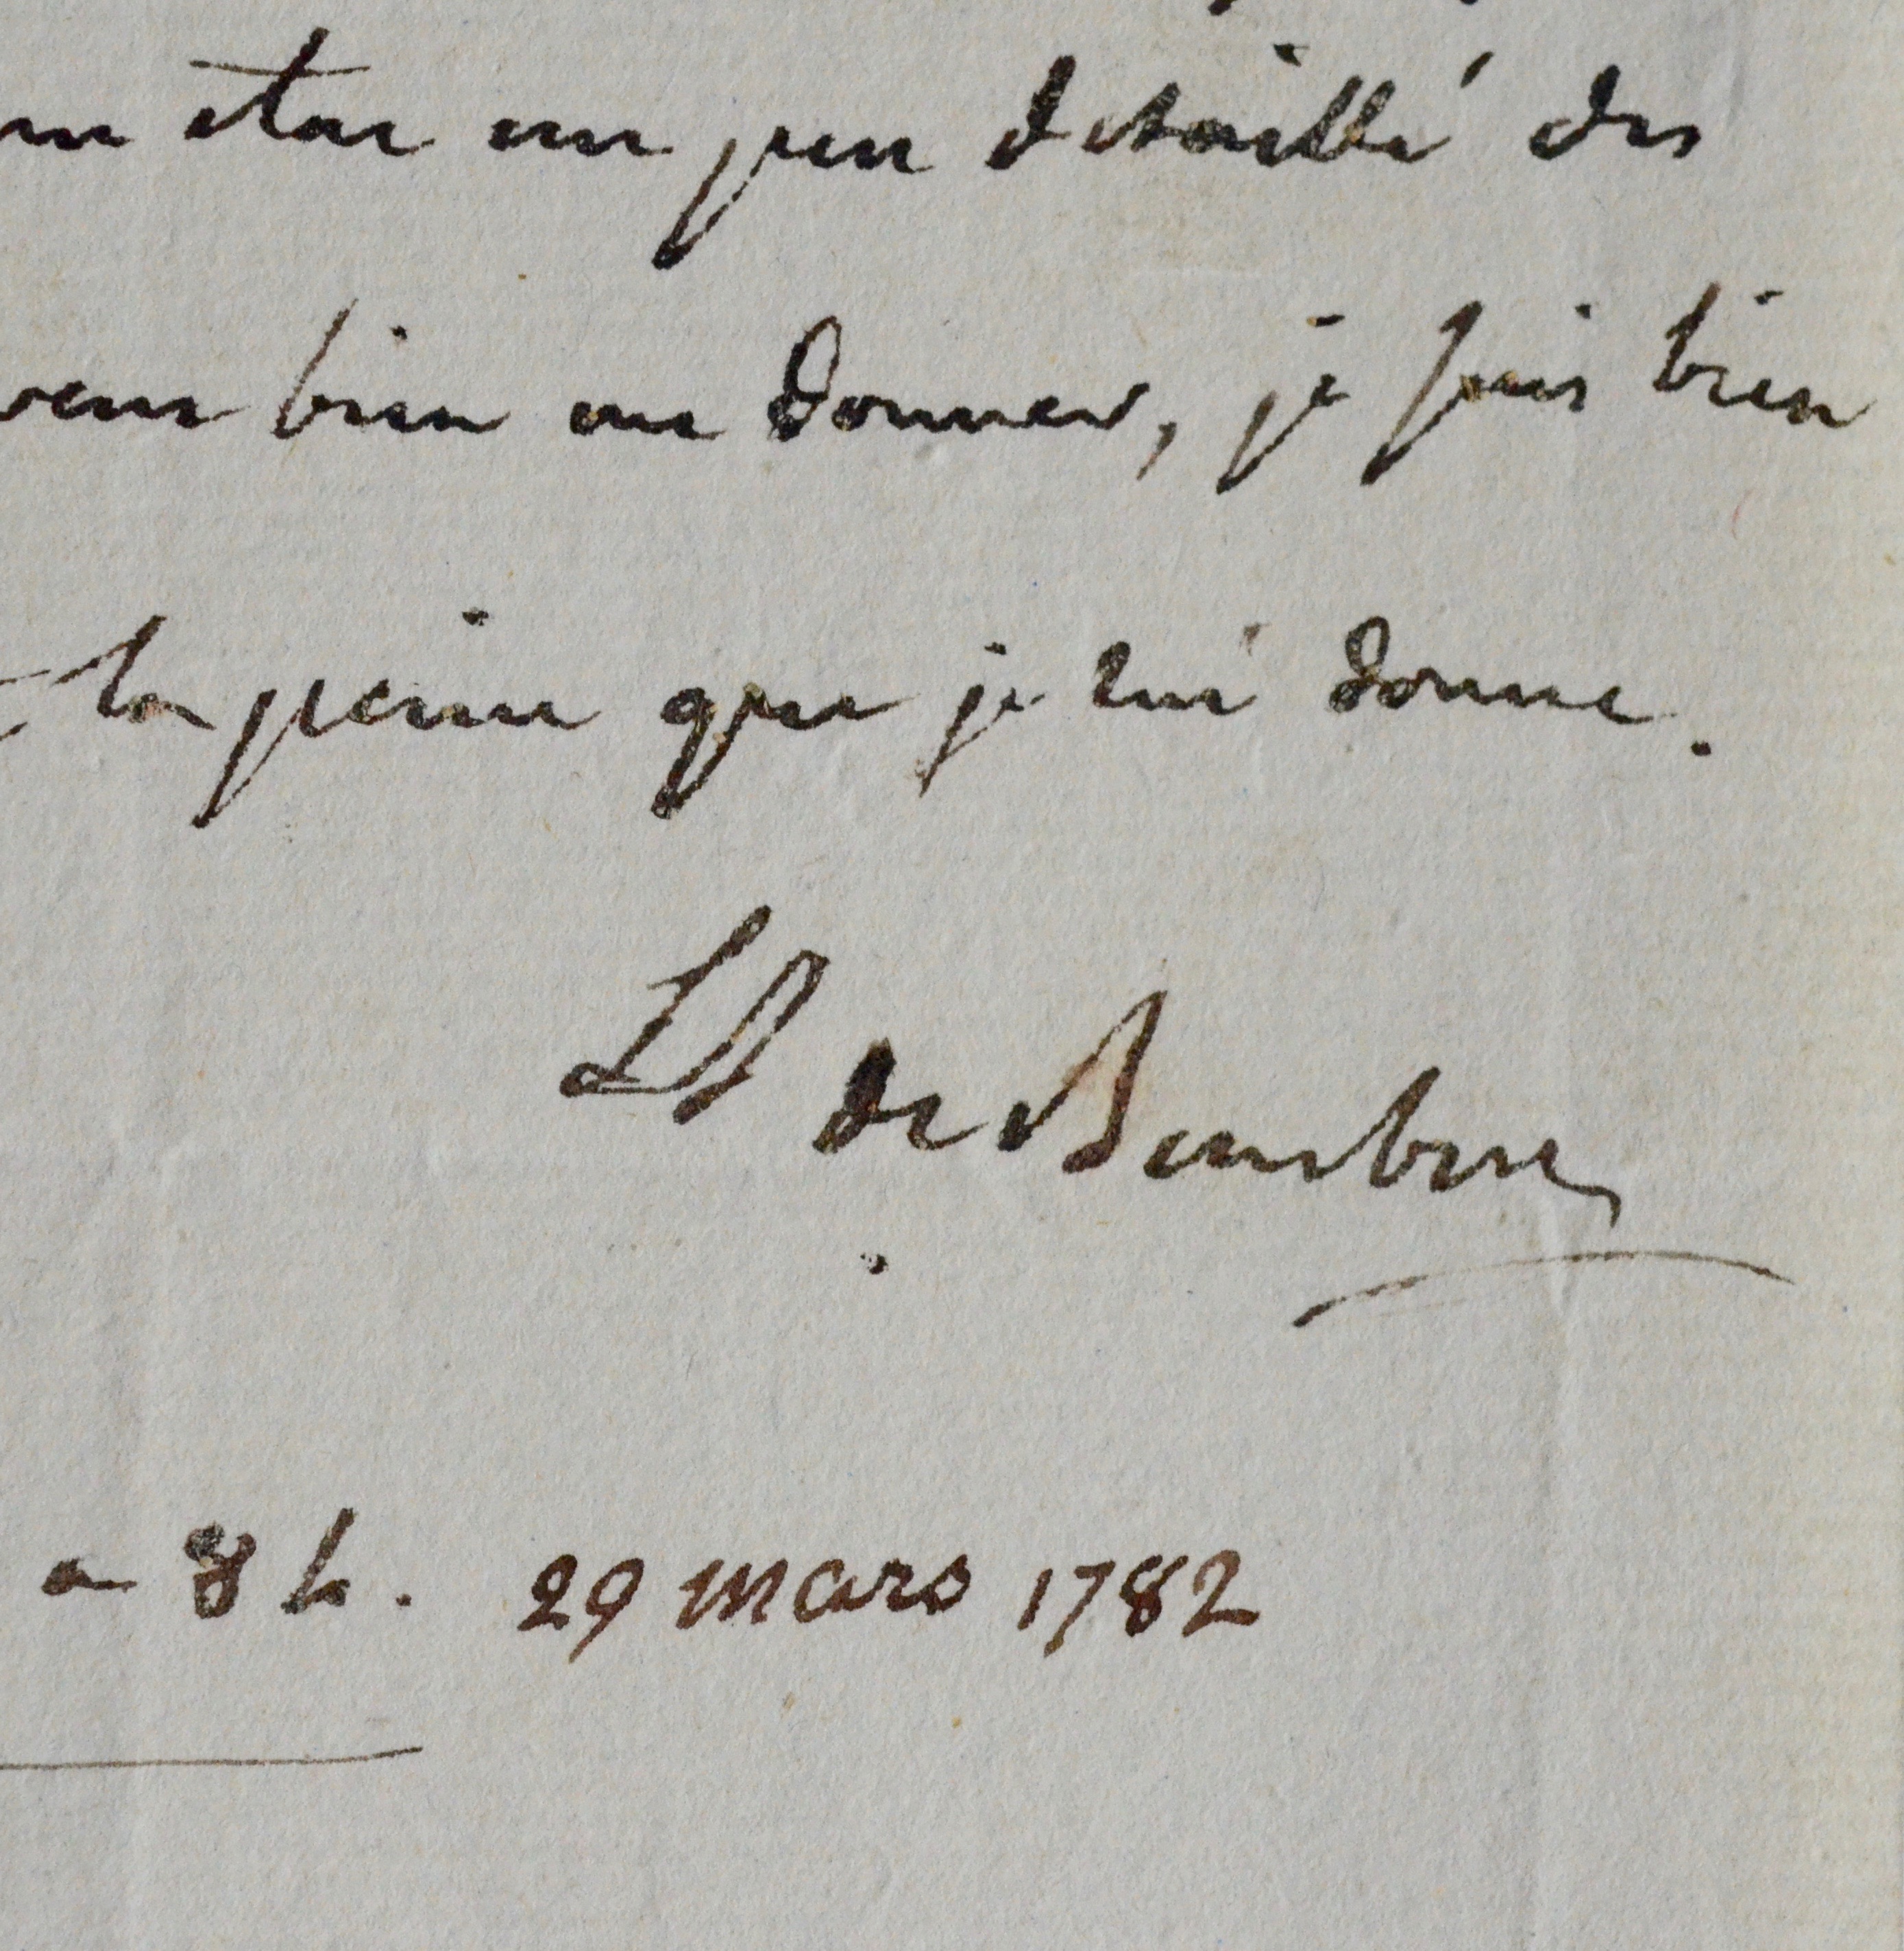 un etat un peu detaillé des
veut bien me donner, je suis bien
la peine que je lui donne.
LP de Bourbon
a 8 h. 29 mars 1782